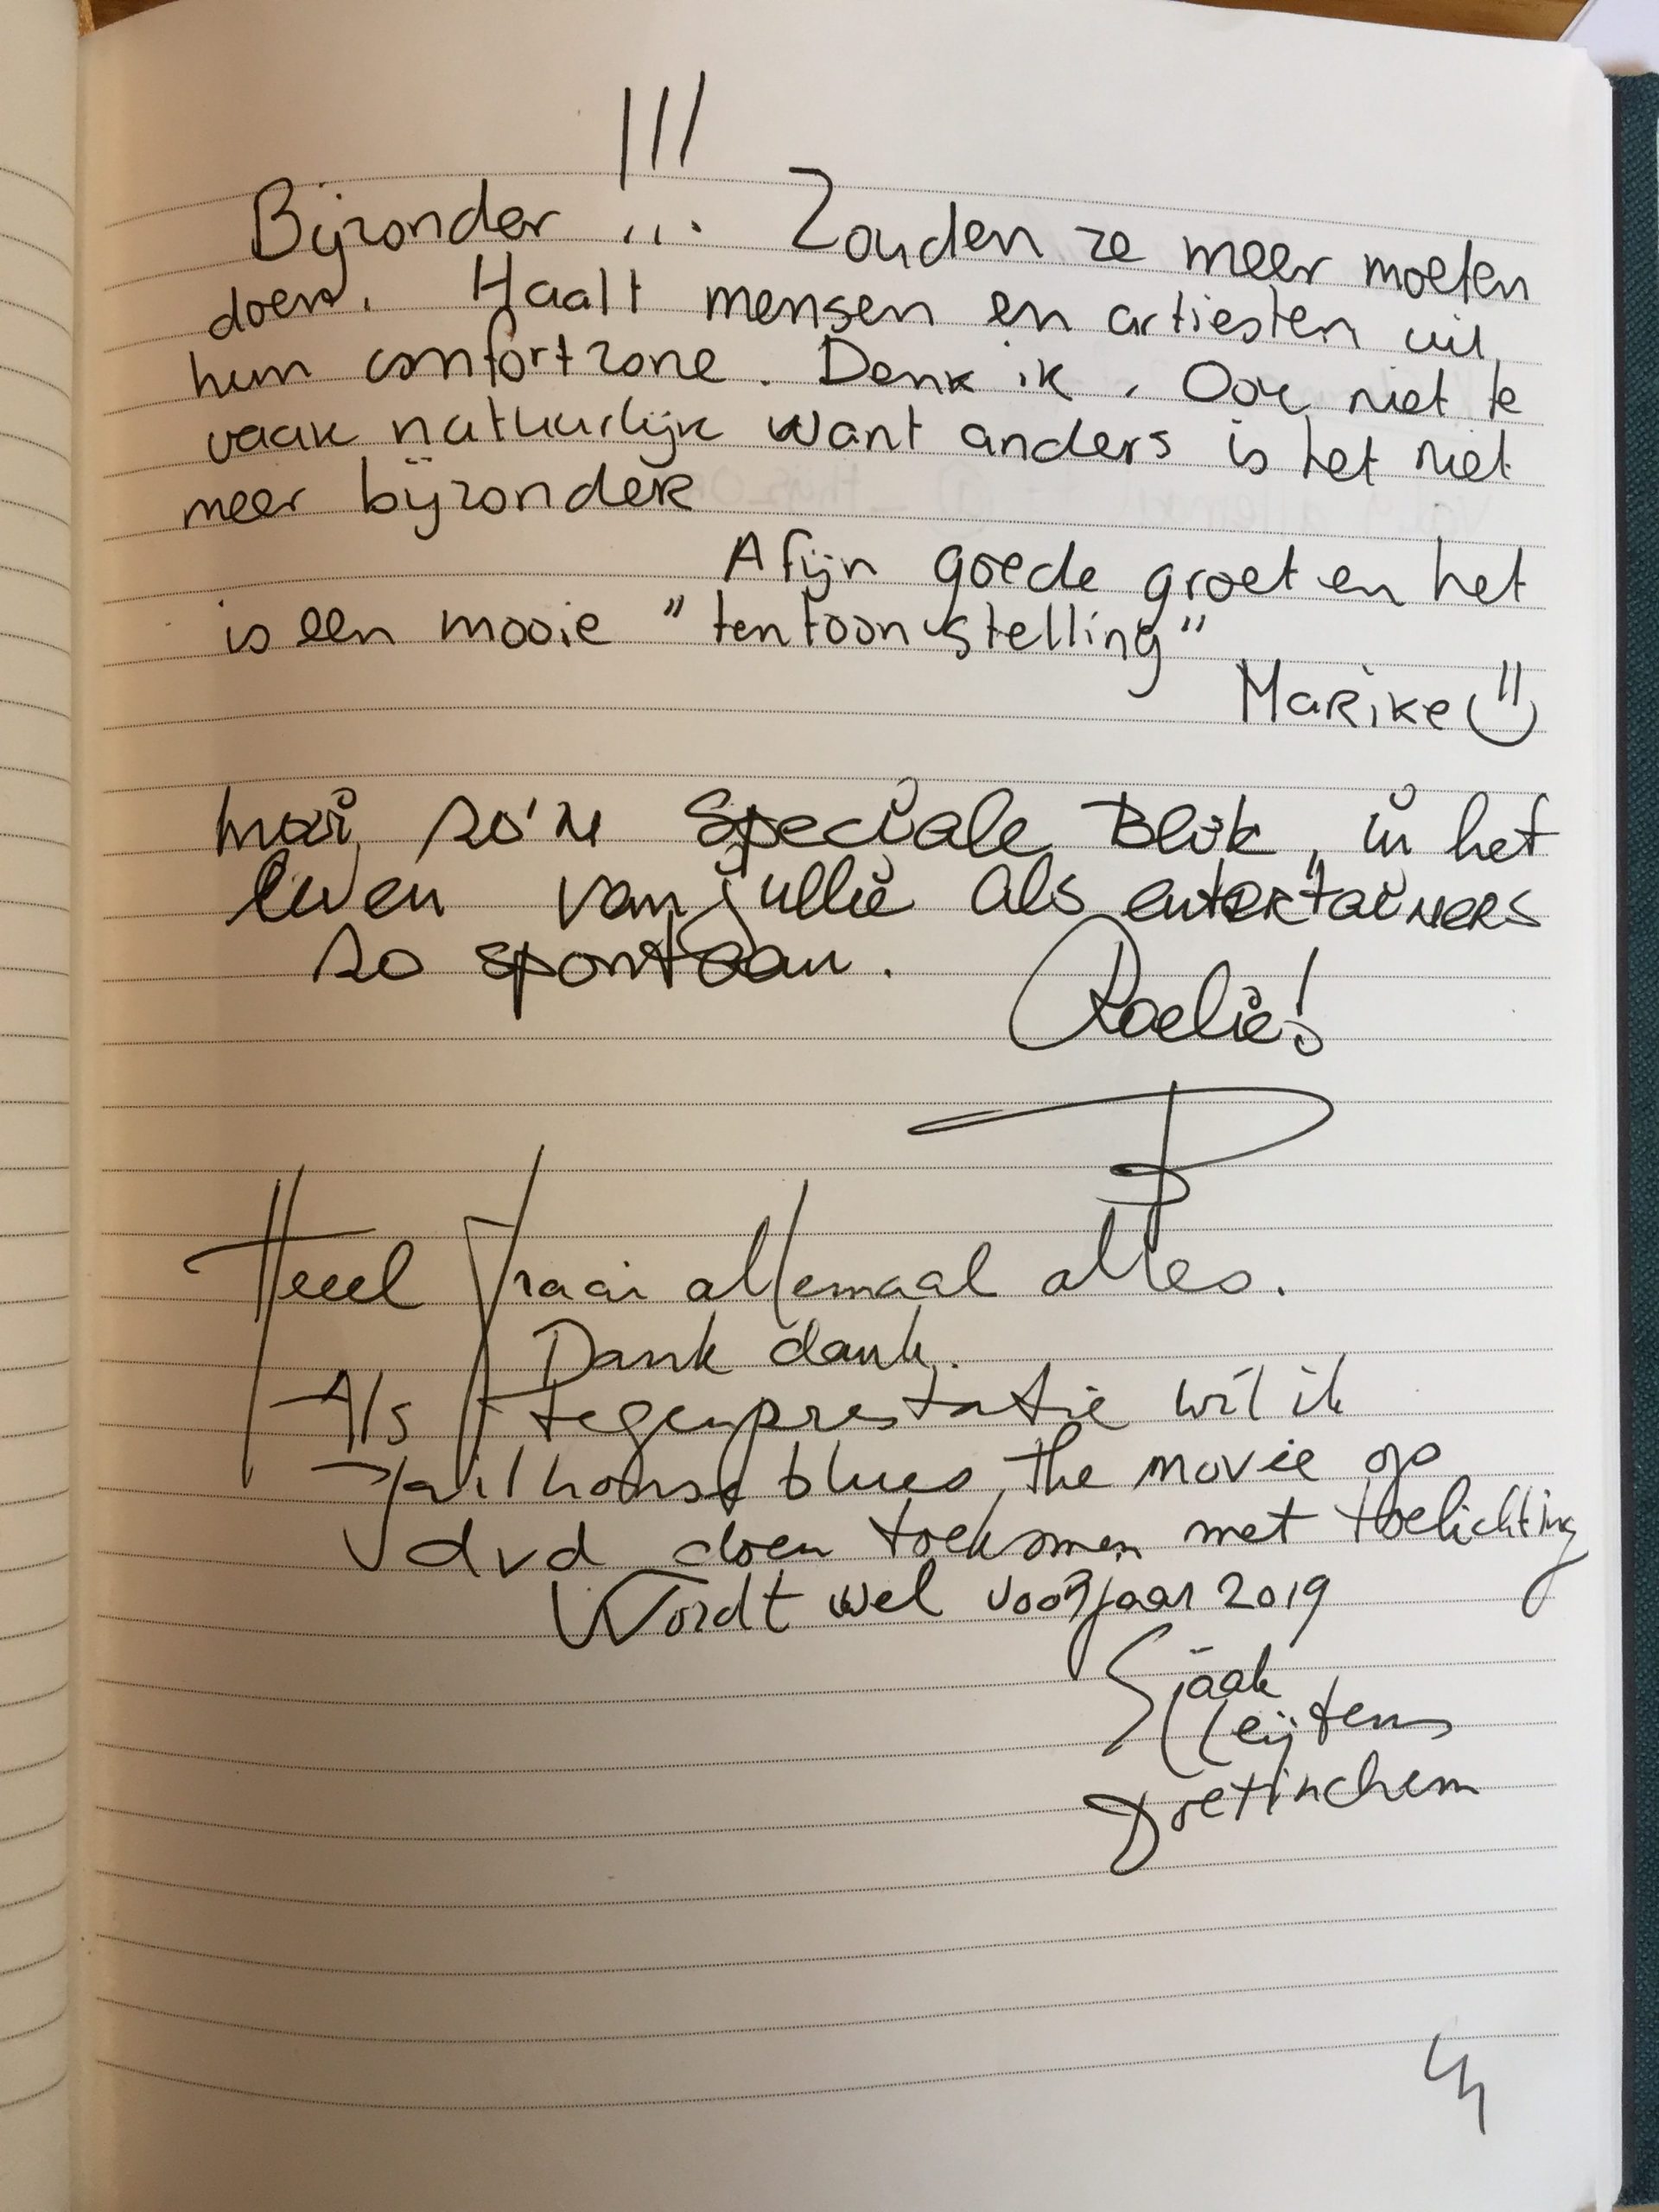 Bijzonder !!! Zouden ze meer moeten
doen. Haalt mensen en artiesten uit
hun comfortzone. Denk ik. Ook niet te
vaak natuurlijk want anders is het niet
meer bijzonder
Afijn goede groet en het
is een mooie "tentoonstelling"
Marike
mooi, zo'n speciale Blik, in het
leven van jullie als entertainers
zo spontaan.
Roelie!
Heeel fraai allemaal alles.
Dank dank.
Als tegenprestatie wil ik
Jailhouse blues, the movie op
dvd doen toekomen met toelichting
Wordt wel voorjaar 2019
Sjaak
Leijtens
Doetinchem